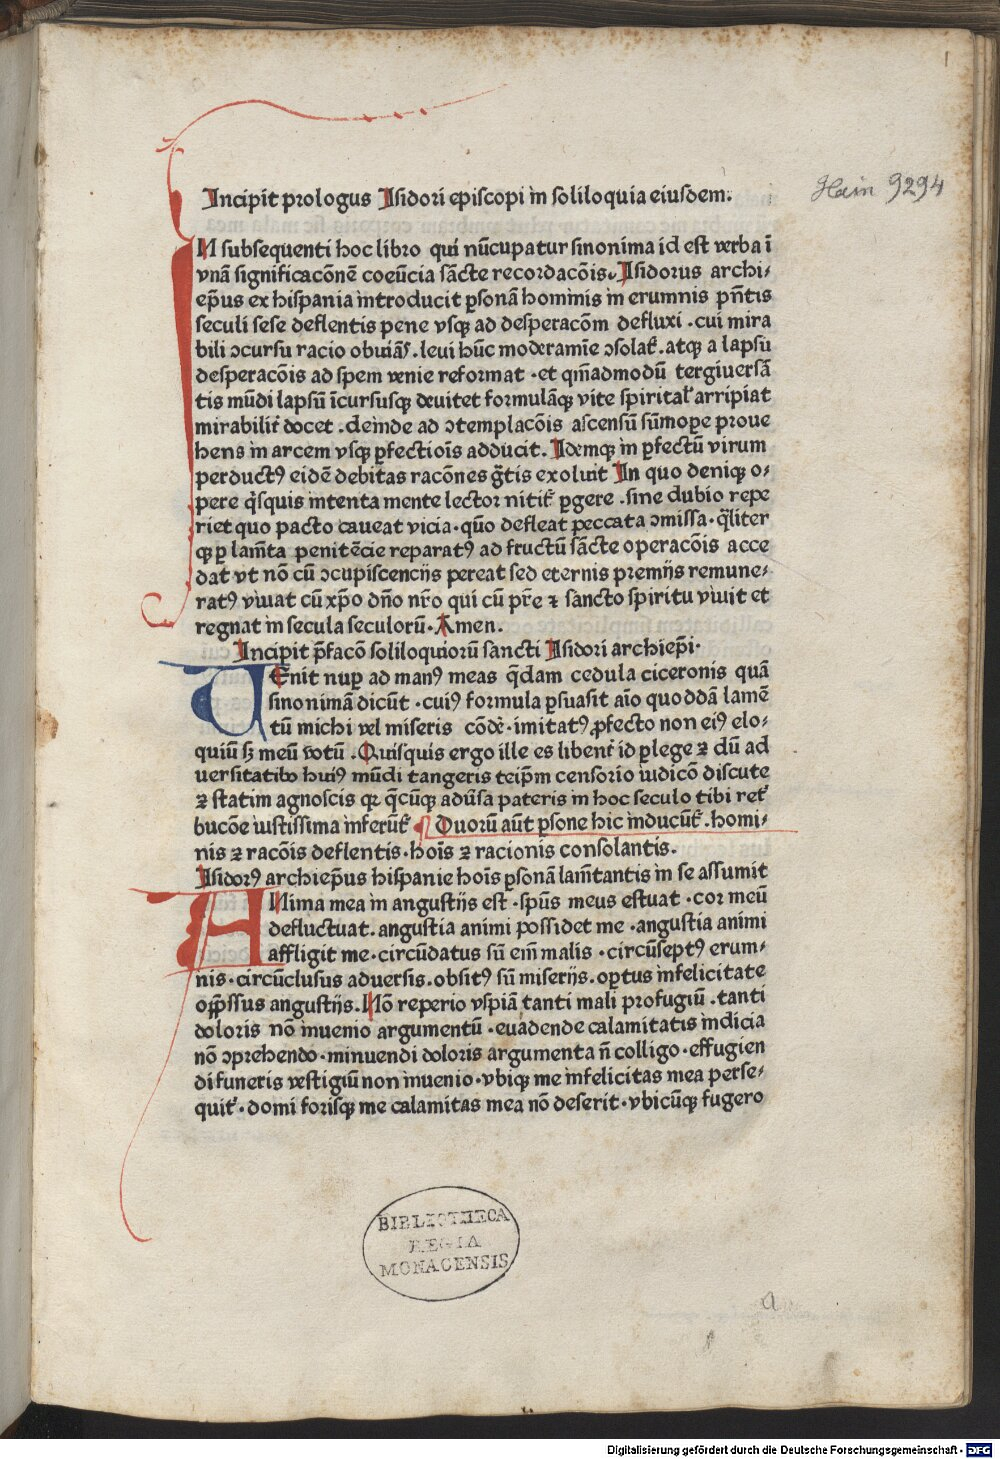 1
Hain 9294
Incipit prologus Isidori episcopi in soliloquia eiusdem.
IN subsequenti hoc libro qui nūcupatur sinonima id est verba ī
vnā significacōnē coeūcia sācte recordacōis. Isidorus archi-
ep̄us ex hispania introducit ꝑsonā hominis in erumnis pn̄tis
seculi sese deflentis pene vsqꝫ ad desperacōm defluxi .cui mira
bili ↄcursu racio obuiās̄. leui hūc moderamīe ↄsolat᷑. atqꝫ a lapsu
desperacōis ad spem venie reformat .et qm̄admodū tergiuersā
tis mūdi lapsū īcursusqꝫ deuitet formulāqꝫ vite spirital᷑ arripiat
mirabilit᷑ docet .deinde ad ↄtemplacōis ascensū sūmoꝑe proue
hens in arcem vsqꝫ ꝑfectiois adducit. Idemqꝫ in ꝑfectū virum
perductꝰ eidē debitas racōnes gr̄tis exoluit In quo deniqꝫ o-
pere q̄squis intenta mente lector nitit᷑ ꝑgere .sine dubio repe
riet quo pacto caueat vicia .quō defleat peccata ↄmissa .qliter
qꝫ ꝑ lamīta penitēcie reparatꝰ ad fructū sācte operacōis acce
dat vt nō cū ↄcupiscencijs pereat sed eternis premijs remune-
ratꝰ viuat cū xp̄o dn̄o nr̄o qui cū pr̄e ꝛ sancto spiritu viuit et
regnat in secula seculorū. Amen.
Incipit p̄facō soliloquiorū sancti Isidori archiep̄i.
VEnit nuꝑ ad manꝰ meas q̄dam cedula ciceronis quā
sinonimā dicūt .cuiꝰ formula ꝑsuasit aīo quoddā lamē
tū michi vel miseris cōde᷑ .imitatꝰ ꝓfecto non eiꝰ elo-
quiū sꝫ meū votū . Quisquis ergo ille es libent᷑ id ꝑlege ꝛ dū ad
uersitatibꝰ huiꝰ mūdi tangeris teip̄m censorio iudicō discute
ꝛ statim agnoscis qꝛ q̄cūqꝫ adūsa pateris in hoc seculo tibi ret᷑
bucōe iustissima inferūt᷑ ¶ Duorū aūt ꝑsone hic inducūt᷑ .homi-
nis ꝛ racōis deflentis .hois̄ ꝛ racionis consolantis.
Isidorꝰ archiep̄us hispanie hois̄ ꝑsonā lamītantis in se assumit
ANima mea in angustijs est .spūs meus estuat .cor meū
defluctuat .angustia animi possidet me .angustia animi
affligit me .circūdatus sū em̄ malis .circūseptꝰ erum-
nis .circūclusus aduersis .obsitꝰ sū miserijs .opꝛtus infelicitate
oꝑpssus angustijs. Nō reperio vspiā tanti mali profugiū .tanti
doloris nō inuenio argumentū .euadende calamitatis indicia
nō ↄprehendo .minuendi doloris argumenta n̄ colligo .effugien
di funeris vestigiū non inuenio .vbiqꝫ me infelicitas mea perse-
quit᷑ .domi forisqꝫ me calamitas mea nō deserit .vbicūqꝫ fugero
BIBLIOTHECA
REGIA
MONACENSIS
a
Digitalisierung gefördert durch die Deutsche Forschungsgemeinschaft - DFG